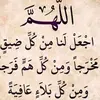 اللَّهُمَّ
اجْعَلْ لَنا مِنْ كُلِّ ضِيقٍ
مَخْرَجاً وَمِنْ كُلِّ هَمٍّ فَرَجاً
وَمِنْ كُلِّ بَلَاءٍ عَافِيَةً